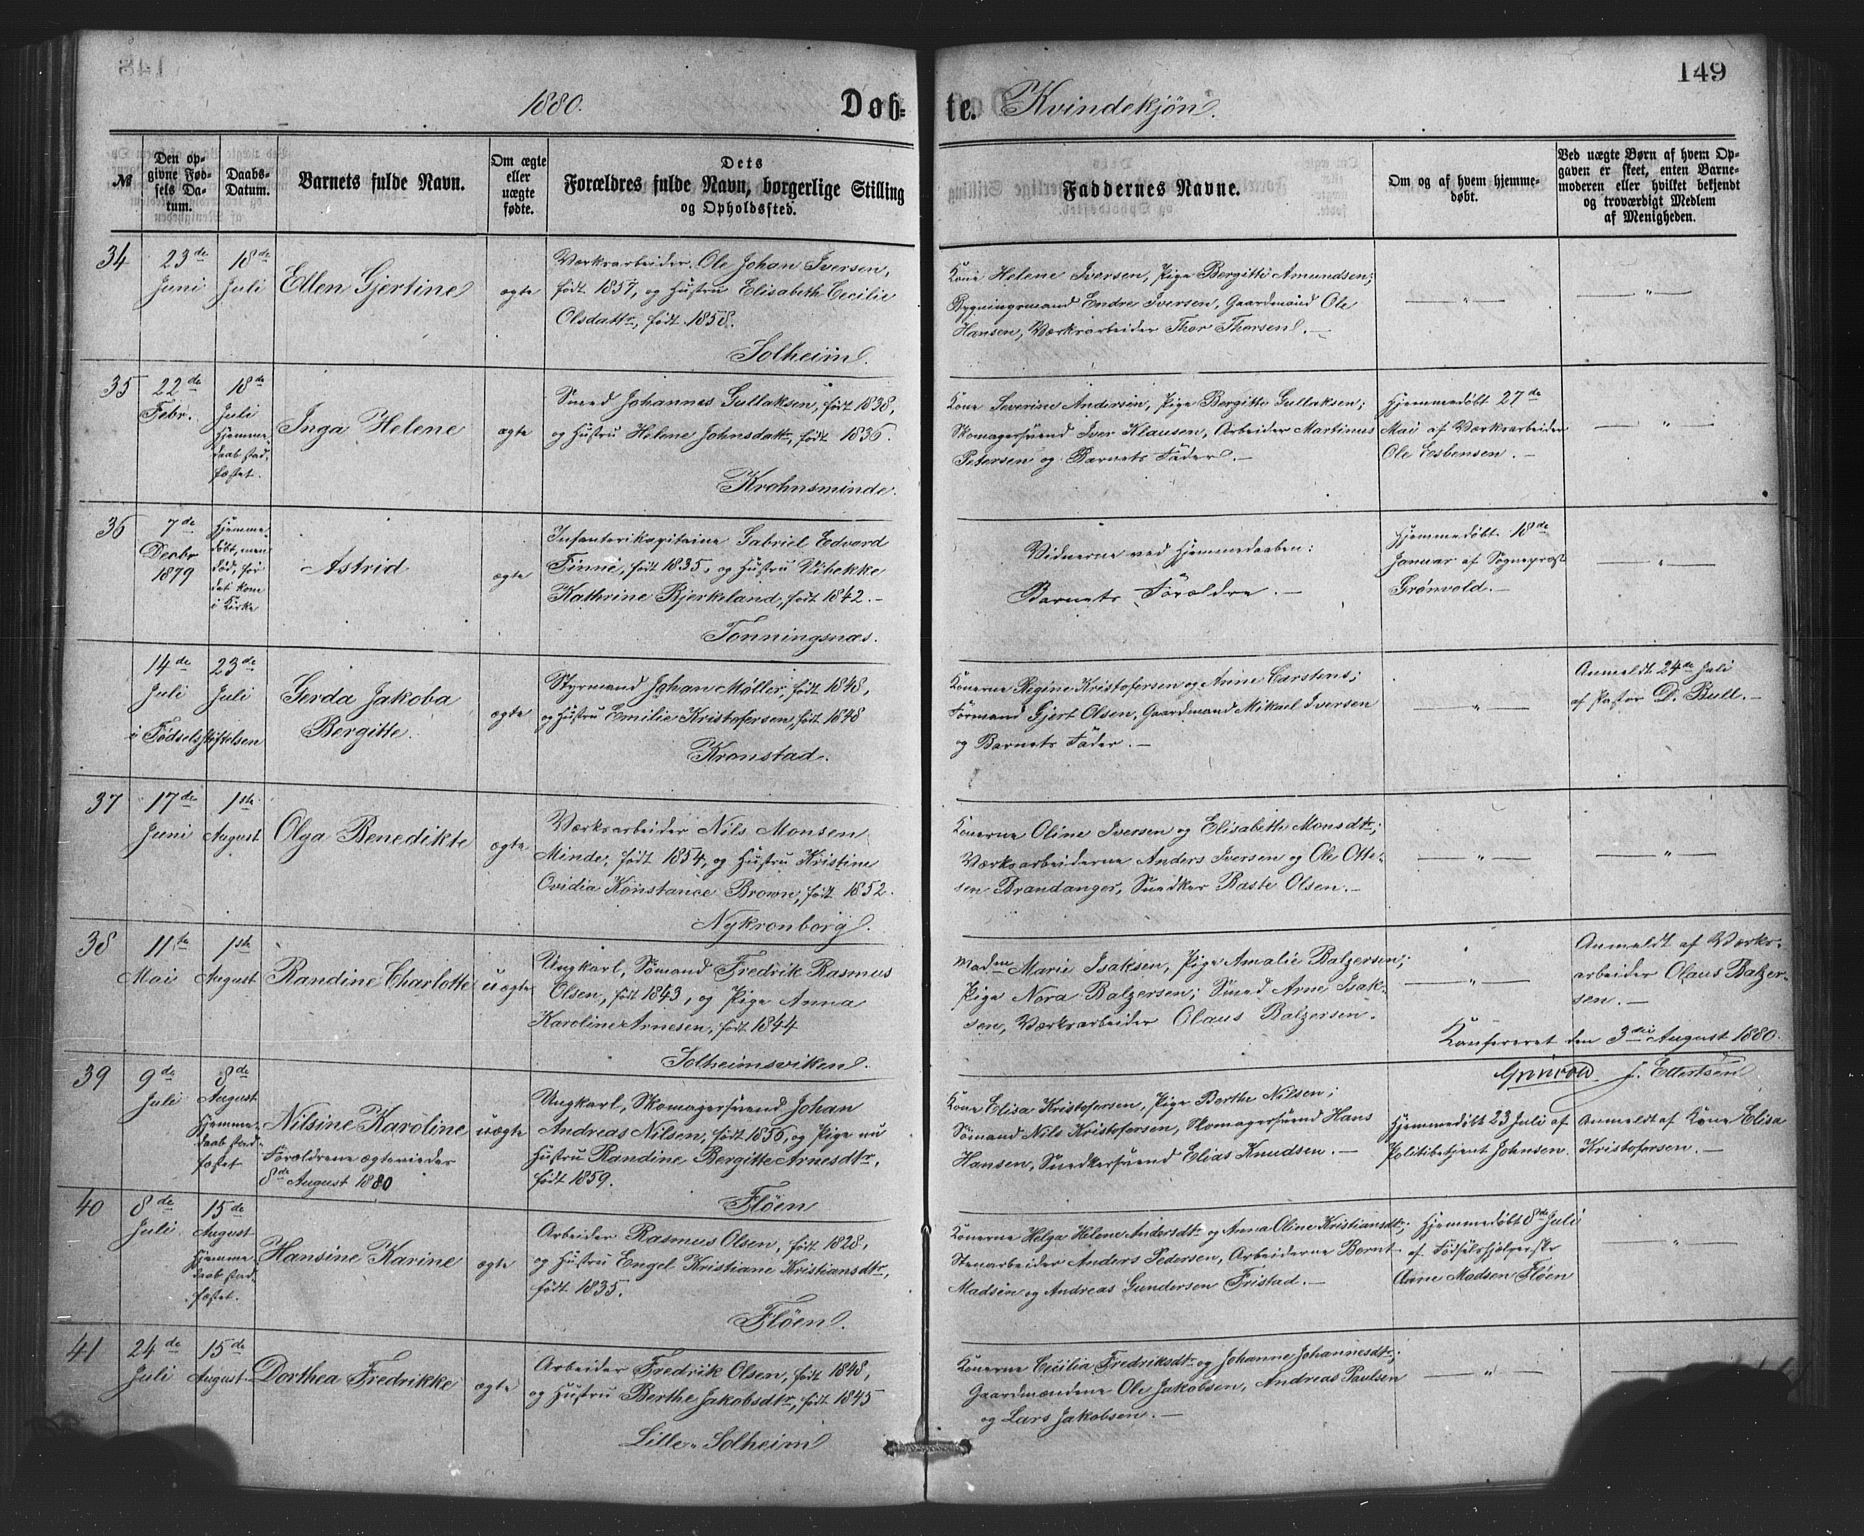 149
1880. Døb-te. Kvindekjøn.
№
Den op-
givne Fød-
sels Da-
tum.
Daabs-
Datum.
Barnets fulde Navn.
Om ægte
eller
uægte
fødte.
Dets
Forældres fulde Navn, borgerlige Stilling
og Opholdssted.
Faddernes Navne.
Om og af hvem hjemme-
døbt.
Ved uægte Børn af hvem Op-
gaven er skeet, enten Barne-
moderen eller hvilket bekjendt
og troværdigt Medlem
af Menigheden.
34
23de
Juni
18de
Juli
Ellen Gjertine
ægte
Værksarbeider Ole Johan Iversen,
født 1857, og Hustru Elisabeth Cecilie
Olsdattr, født 1858.
Solheim.
Kone Helene Iversen, Pige Bergitte Amundsen;
Bygningsmand Endre Iversen, Gaardmand Ole
Hansen, Værksarbeider Thor Thorsen. —
— " —
— " —
35
22de
Febr.
18de
Juli
Hjemme-
daab stad-
fæstet.
Inga Helene
ægte
Smed Johannes Gullaksen, født 1838,
og Hustru Helene Johnsdattr, født 1836.
Krohnsminde.
Kone Severine Andersen, Pige Bergitte Gullaksen;
Skomagersvend Iver Klausen, Arbeider Martinus
Petersen og Barnets Fader. —
Hjemmedøbt 27de
Mai af Værksarbeider
Ole Esbensen. —
— " —
36
7de
Decbr
1879
Hjemme-
døbt, men
død, før
det kom
i Kirke
Astrid
ægte
Infanterikapitaine Gabriel Edvard
Finne, født 1835, og Hustru Vibekke
Kathrine Bjerkeland, født 1842. —
Tonningsnæs.
Vidnerne ved Hjemmedaaben:
Barnets Forældre. —
Hjemmedøbt 18de
Januar af Sogneprest
Grønvold. —
— " —
14de
Juli
23de
Juli
i Fødselsstiftelsen
Gerda Jakoba
Bergitte.
ægte
Styrmand Johan Møller, født 1848,
og Hustru Emilie Kristofersen, født 1848
Kronstad.
Konerne Regine Kristofersen og Anne Carstens;
Formand Gjert Olsen, Gaardmand Mikael Iversen
og Barnets Fader. —
— " —
Anmeldt 24de Juli
af Pastor D. Bull. —
37
17de
Juni
1ste
August
Olga Benedikte
ægte
Værksarbeider Nils Monsen
Minde, født 1854, og Hustru Kristine
Ovidia Konstance Brown, født 1852.
Nykronborg.
Konerne Oline Iversen og Elisabeth Monsdtr;
Værksarbeiderne Anders Iversen og Ole Otte-
sen Brandanger, Snedker Raste Olsen. —
— " —
— " —
38
11te
Mai
1ste
August
Randine Charlotte
uægte
Ungkarl, Sømand Fredrik Rasmus
Olsen, født 1843, og Pige Anna
Karoline Arnesen, født 1844
Solheimsviken.
Madm Marie Isaksen, Pige Amalie Balzersen;
Pige Nora Balzersen; Smed Arne Isak-
sen, Værksarbeider Olaus Balzersen.
— " —
Anmeldt af Værks-
arbeider Olaus Balzer-
sen. —
Konfereret den 3die August 1880.
Grønvold. J. Ellertsen
39
9de
Juli
8de
August
Hjemme-
daab stad-
fæstet
Nilsine Karoline
Forældrene ægteviedes
8de August 1880
uægte
Ungkarl, Skomagersvend Johan
Andreas Nilsen, født 1856, og Pige nu
Hustru Randine Bergitte Arnesdtr,
født 1859.
Fløen
Kone Elisa Kristofersen, Pige Berthe Nilsen;
Sømand Nils Kristofersen, Skomagersvend Hans
Hansen, Snedkersvend Elias Knudsen. —
Hjemmedøbt 23 Juli af
Politibetjent Johnsen.
Anmeldt af Kone Elisa
Kristofersen. —
40
8de
Juli
15de
August
Hjemme-
daab stad-
fæstet.
Hansine Karine
ægte
Arbeider Rasmus Olsen, født 1828,
og Hustru Engel Kristiane Kristiansdtr,
født 1835.
Fløen.
Konerne Helga Helene Andersdtr og Anna Oline Kristiansdtr;
Stenarbeider Anders Pedersen, Arbeiderne Bernt
Madsen og Andreas Gundersen Fristad. —
Hjemmedøbt 8de Juli
af Fødselshjælperske
Anne Madsen Fløen
— " —
41
24de
Juli
15de
August
Dorthea Fredrikke
ægte
Arbeider Fredrik Olsen, født 1848,
og Hustru Berthe Jakobsdtr, født 1845
Lille-Solheim
Konerne Cecilia Fredriksdtr og Johanne Johannesdtr;
Gaardmændene Ole Jakobsen, Andreas Paulsen
og Lars Jakobsen. —
— " —